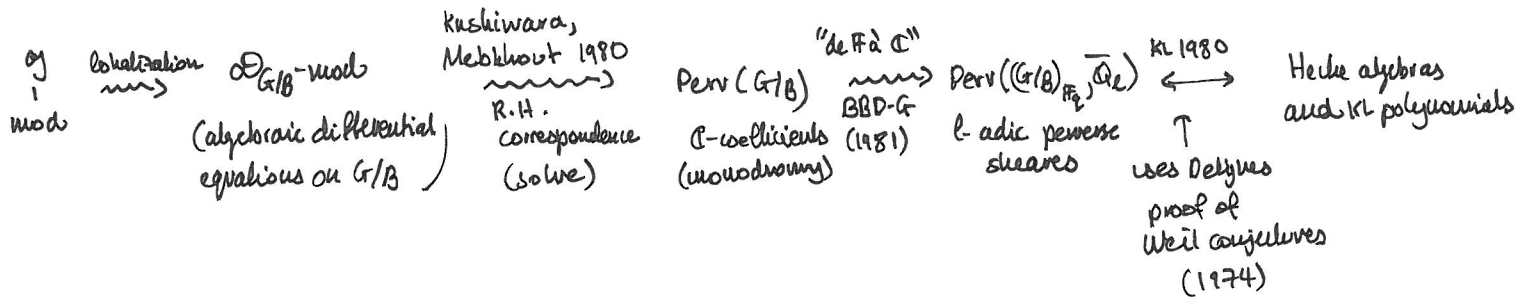 𝔤-mod
localization
𝒟_{G/B}-mod
(algebraic differential
equations on G/B)
Kashiwara,
Mebkhout 1980
R.H.
correspondence
(solve)
Perv(G/B)
ℂ-coefficients
(monodromy)
"de 𝔽 à ℂ"
BBD-G
(1981)
Perv((G/B)_{𝔽_q}, ℚ̄_ℓ)
l-adic perverse
sheaves
KL 1980
↑
uses Delignes
proof of
Weil conjectures
(1974)
Hecke algebras
and KL polynomials